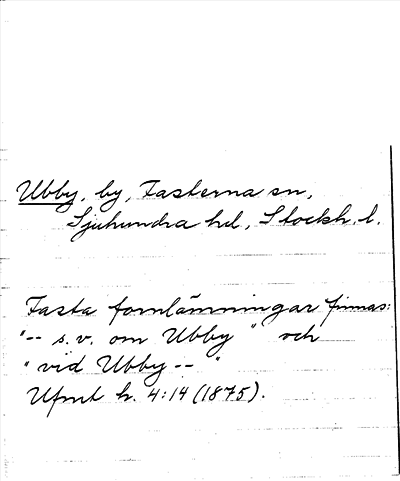 Ubby, by, Fasterna sn,
Sjuhundra hd, Stockh. l.
Fasta fornlämningar finnas:
"-- s.v. om Ubby" och
"vid Ubby -- "
Ufmt h. 4:14 (1875).